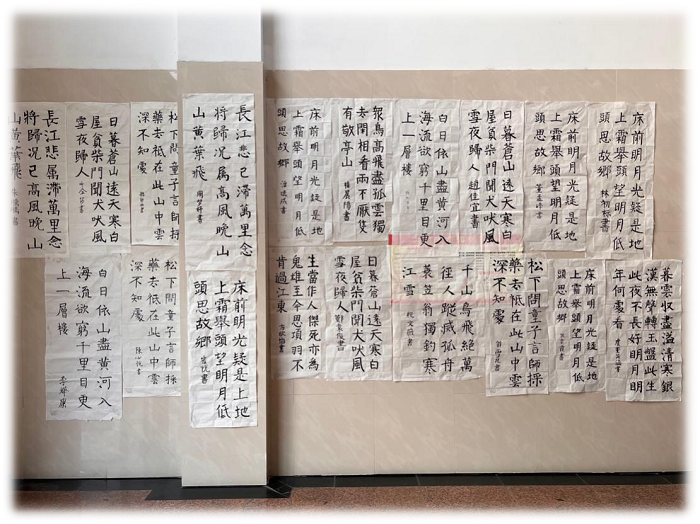 長江悲滯萬里念
將歸況已高風晚山
山黃葉飛
日暮蒼山遠天寒白
屋貧柴門聞犬吠風
雪夜歸人
松下問童子言師採
藥去祗在此山中雲
深不知處
長江悲已滯萬里念
將歸況属高風晚
山黃葉飛
床前明月光疑是地
上霜舉頭望明月低
頭思故鄉
衆鳥高飛盡孤雲獨
去閑相看兩不厭隻
有敬亭山
白日依山盡黃河入
海流欲窮千里目更
上一層樓
日暮蒼山遠天寒白
屋貧柴門聞犬吠風
雪夜歸人 趙佳宜書
床前明月光疑是地
上霜舉頭望明月低
頭思故鄉
床前明月光疑是地
上霜舉頭望明月低
頭思故鄉
白日依山盡黃河入
海流欲窮千里目更
上一層樓
松下問童子言師採
藥去祗在此山中雲
深不知處
床前明月光疑是上地
上霜舉頭望明月低
頭思故鄉
生當作人傑死亦為
鬼雄至今思項羽不
肯過江東
日暮蒼山遠天寒白
屋貧柴門聞犬吠風
雪夜歸人
千山鳥飛絶萬
徑人蹤滅孤舟
蓑笠翁獨釣寒
江雪
松下問童子言師採
藥去祗在此山中雲
深不知處
床前明月光疑是地
上霜舉頭望明月低
頭思故鄉
暮雲收盡溢清寒銀
漢無聲轉玉盤此生
此夜不長好明月明
年何處看